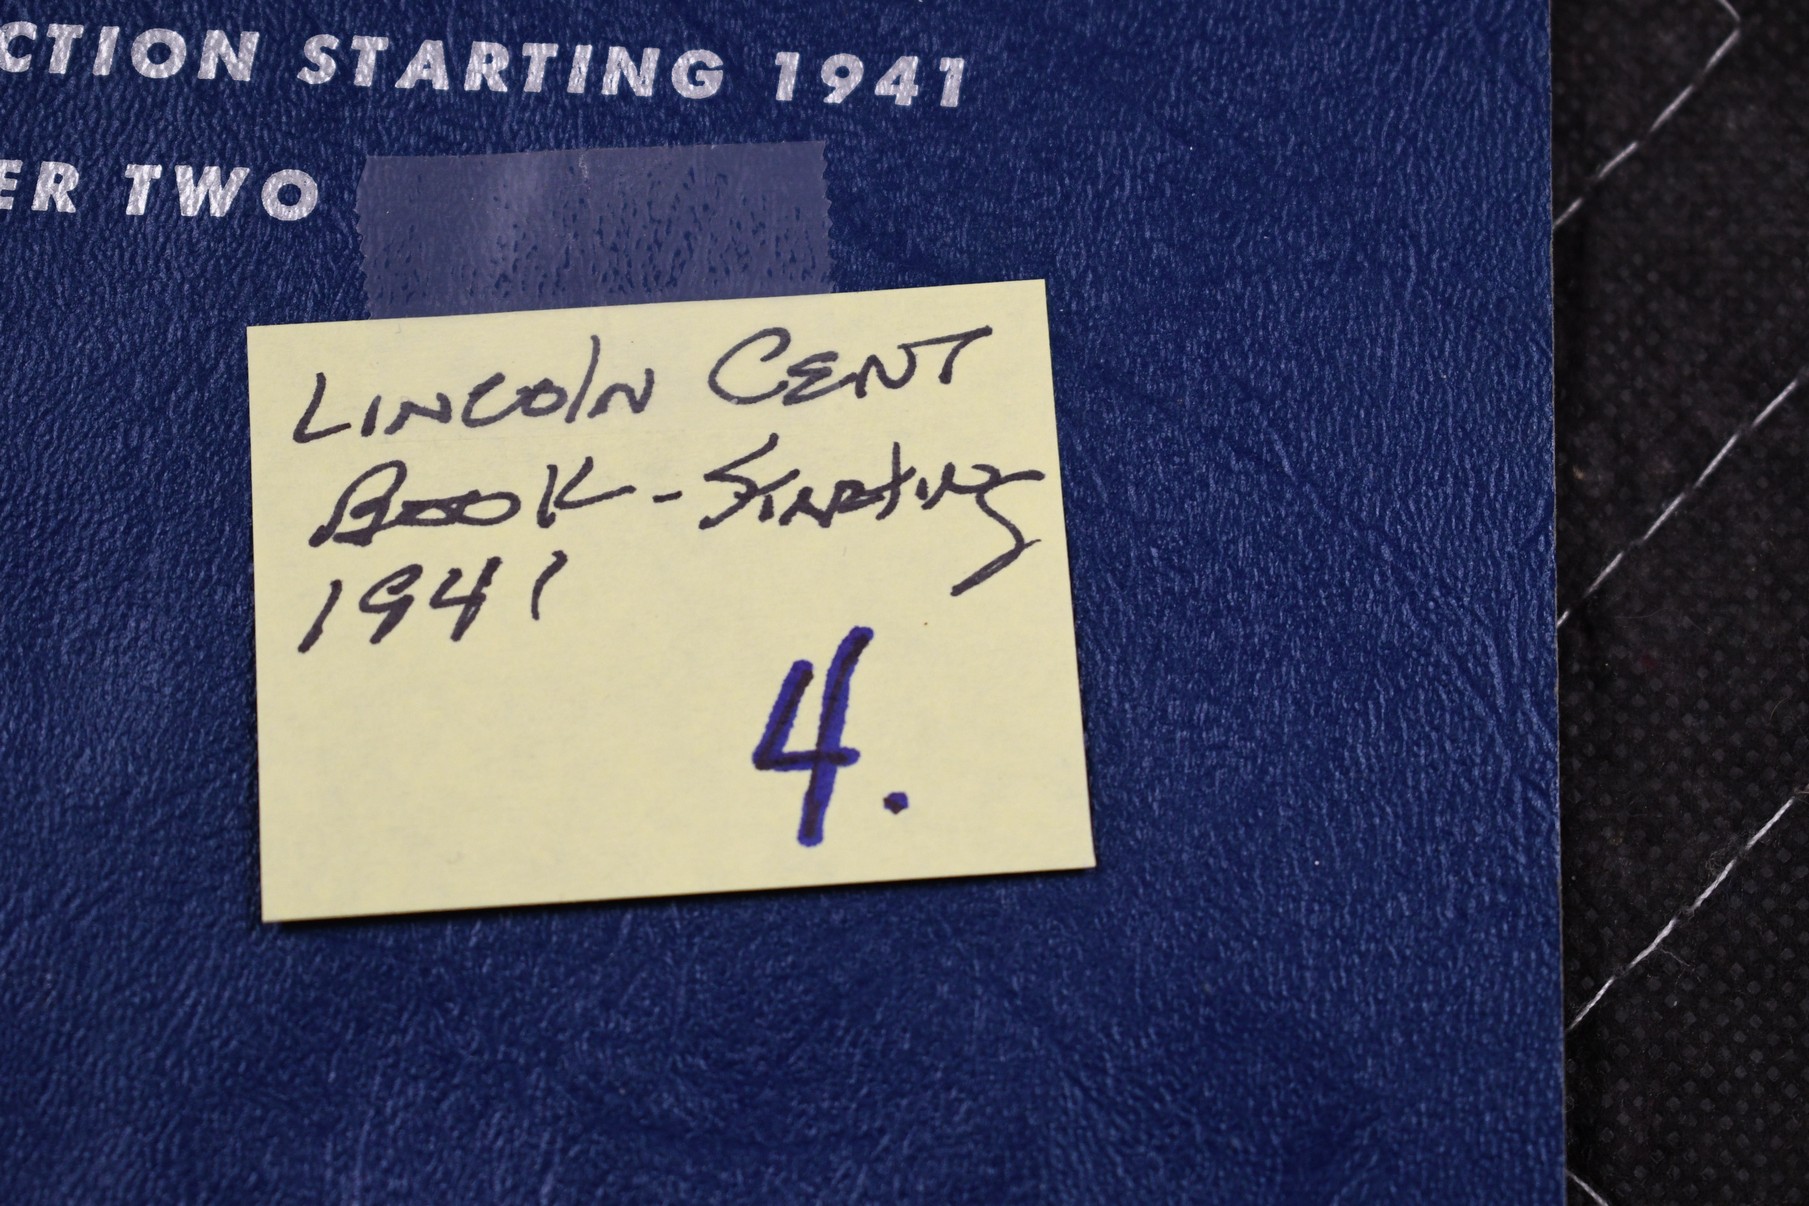 CTION STARTING 1941
ER TWO
LINCOLN CENT
BOOK - STARTING
1941
4.